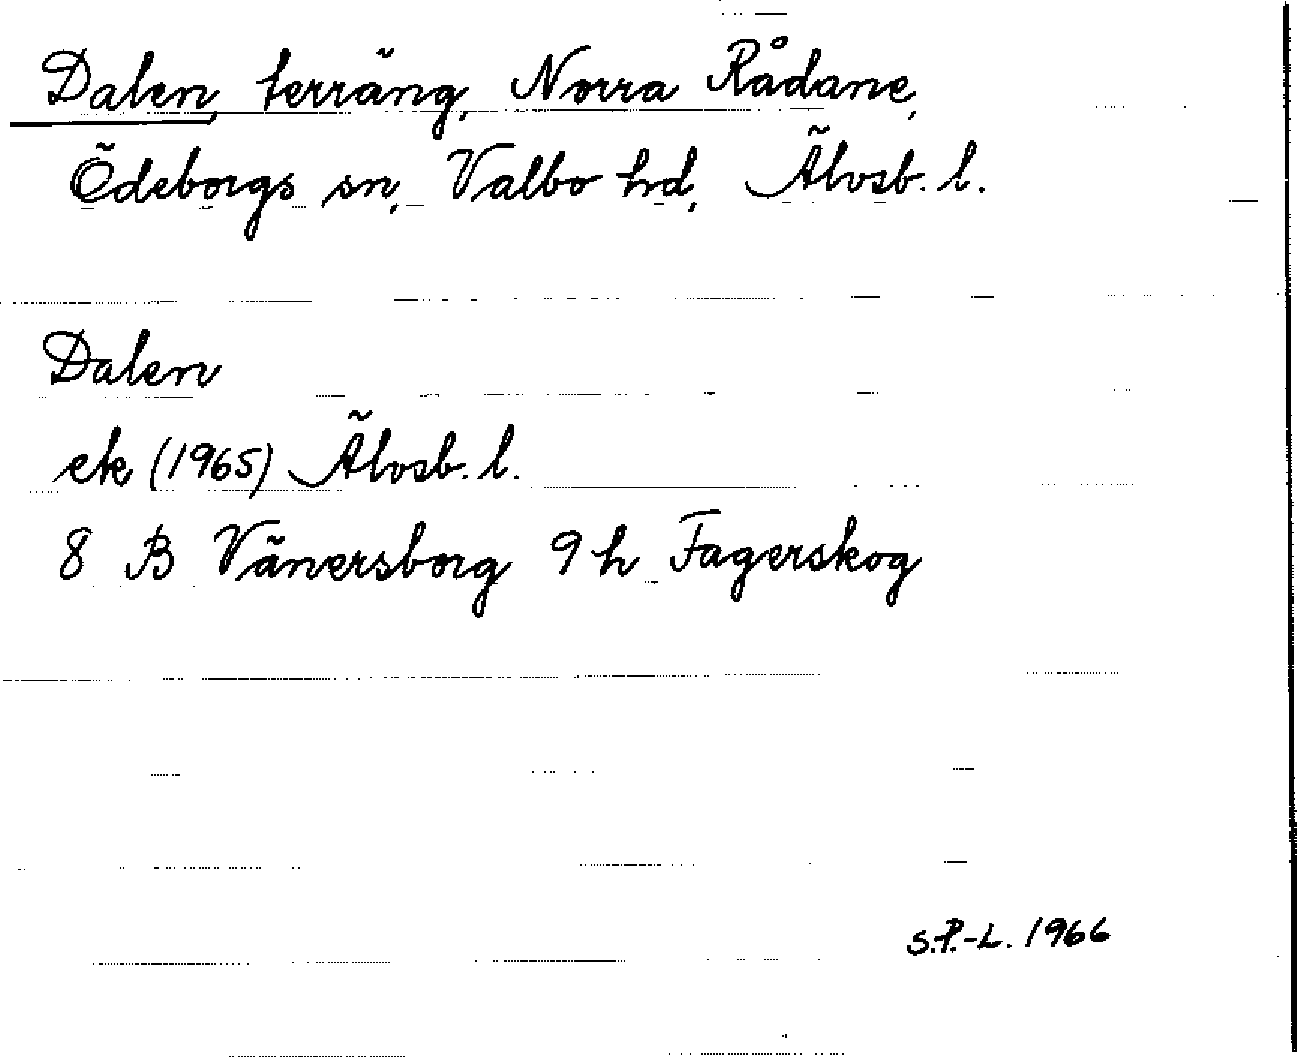 Dalen, terräng, Norra Rådane,
Ödeborgs sn, Valbo hd, Älvsb. l.
Dalen
ek (1965) Älvsb. l.
8 B Vänersborg 9 h Fagerskog
S.P.-L. 1966